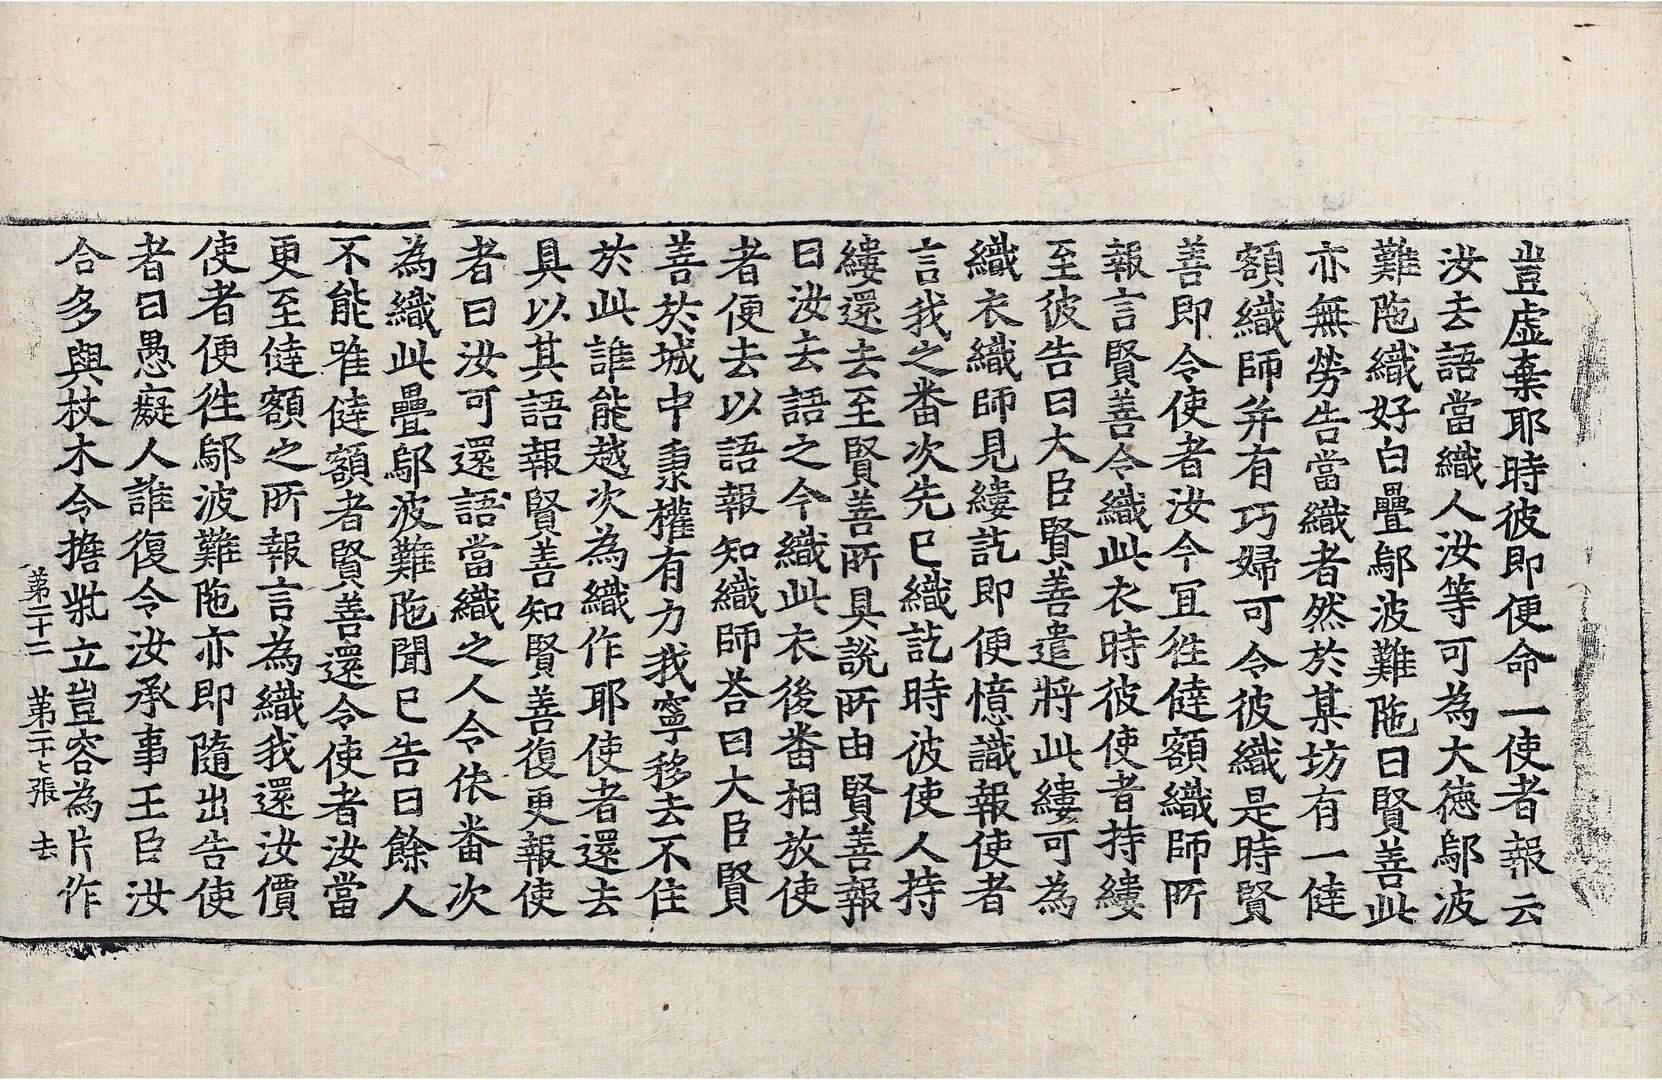 豈虛棄耶時彼即便命一使者報云
汝去語當織人汝等可為大德鄔波
難陁織好白疊鄔波難陁曰賢善此
亦無勞告當織者然於某坊有一僥
額織師并有巧婦可令彼織是時賢
善即令使者汝今冝往僥額織師所
報言賢善令織此衣時彼使者持縷
至彼告曰大臣賢善遣將此縷可為
織衣織師見縷訖即便憶識報使者
言我之番次先已織訖時彼使人持
縷還去至賢善所具說所由賢善報
曰汝去語之今織此衣後番相放使
者便去以語報知織師荅曰大臣賢
善於城中秉權有力我寧移去不住
於此誰能越次為織作耶使者還去
具以其語報賢善知賢善復更報使
者曰汝可還語當織之人令依番次
為織此疊鄔波難陁聞已告曰餘人
不能唯僥額者賢善還令使者汝當
更至僥額之所報言為織我還汝價
使者便往鄔波難陁亦即隨出告使
者曰愚癡人誰復令汝承事王臣汝
合多與杖木令擔㧘立豈容為片作
第二十二 第二十七張 去